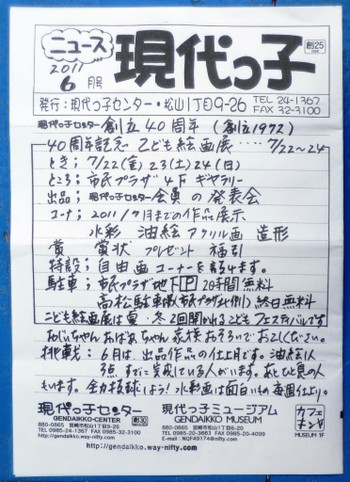 ニュース
2011
6月号
現代っ子
創25
発行:現代っ子センター・松山1丁目9-26
TEL 24-1367
FAX 32-3100
現代っ子センター創立40周年(創立1972)
40周年記念 こども絵画展‥‥7/22~24
とき; 7/22(金)23(土)24(日)
ところ; 市民プラザ 4F ギャラリー
出品; 現代っ子センター会員の発表会
コーナ; 2011/7月までの作品展示
水彩 油絵 アクリル画 造形
賞 賞状 プレゼント 福引
特設; 自由画コーナーを設けます。
駐車; 市民プラザ地下P 2時間無料
高松駐車場(市民プラザ北側)終日無料
こども絵画展は夏・冬2回開かれるこどもフェスティバルです
おじいちゃん おばあちゃん 家族おそろいでお越しください。
挑戦; 6月は、出品作品の仕上月です。油絵は
点 すでに完成している人がいます。あとひと息の人
もいます。全力投球しよう!水彩画は面白いもの毎週仕上り。
現代っ子センター
GENDAIKKO-CENTER
創30
880-0865 宮崎市松山1丁目9-26
TEL 0985-24-1367 FAX 0985-32-3100
gendaikko.way-nifty.com/
現代っ子ミュージアム
GENDAIKKO MUSEUM
880-0865 宮崎市松山1丁目9-26
TEL・FAX 0985-
E-mail:NQF49174@nifty.com
カフェ
MUSEUM 1F
http://gendaikko.way-nifty.com/